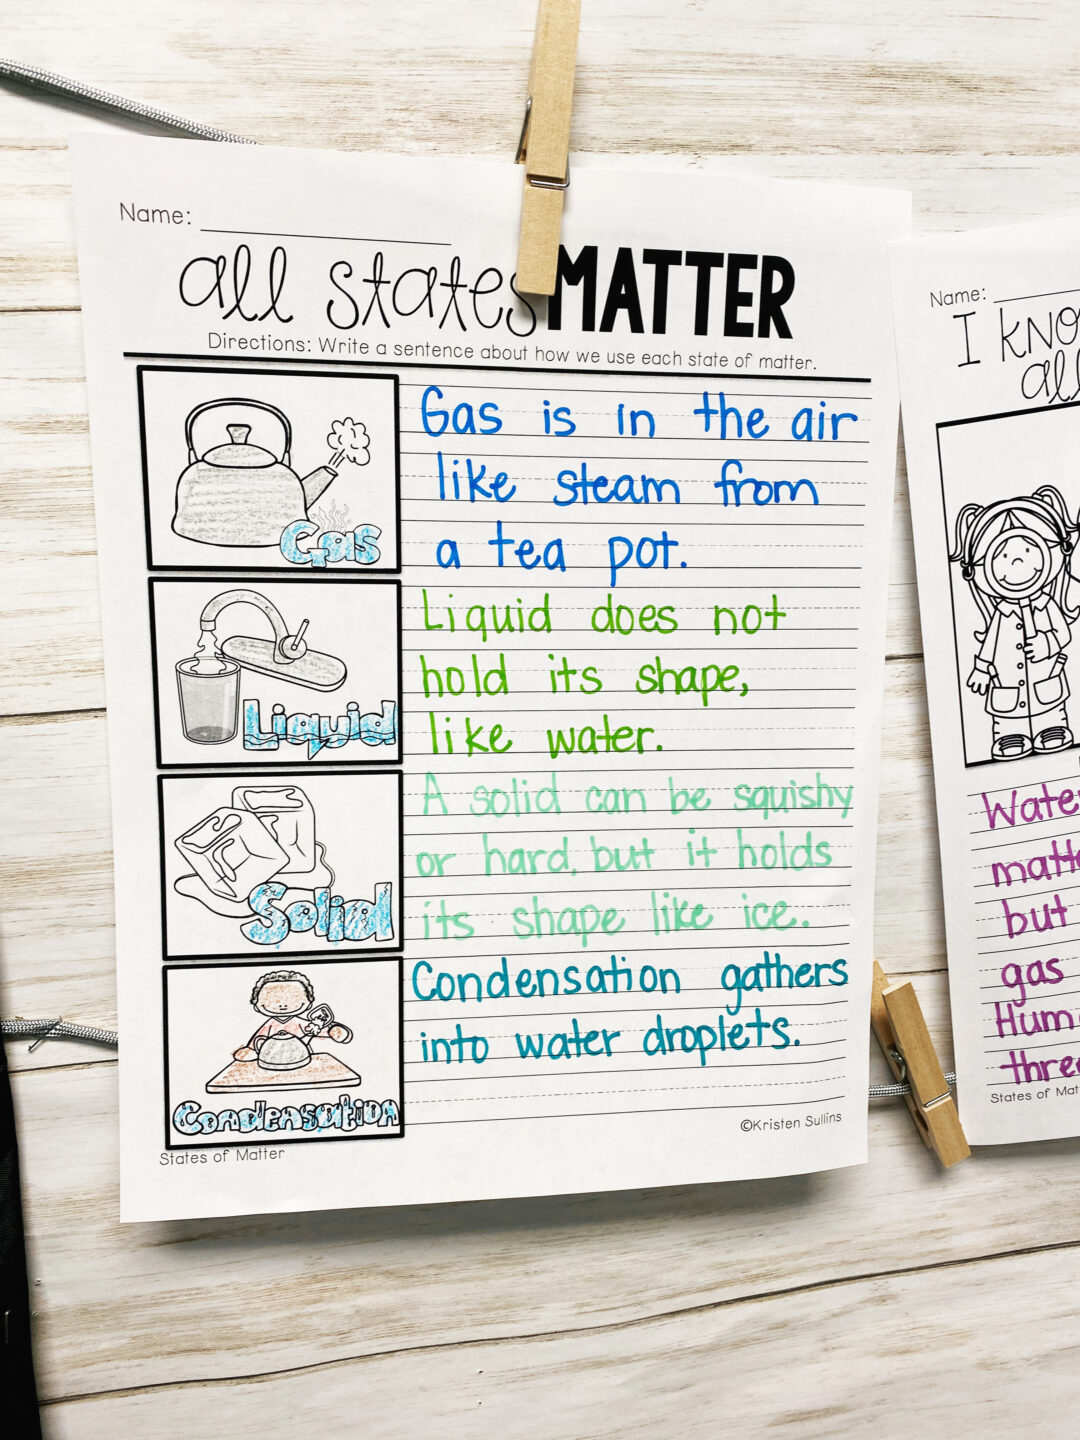 Name:
all states MATTER
Directions: Write a sentence about how we use each state of matter.
Gas
Gas is in the air
like steam from
a tea pot.
Liquid
Liquid does not
hold its shape,
like water.
Solid
A solid can be squishy
or hard, but it holds
its shape like ice.
Condensation
Condensation gathers
into water droplets.
©Kristen Sullins
States of Matter
Name:
I
all
but
gas
States of